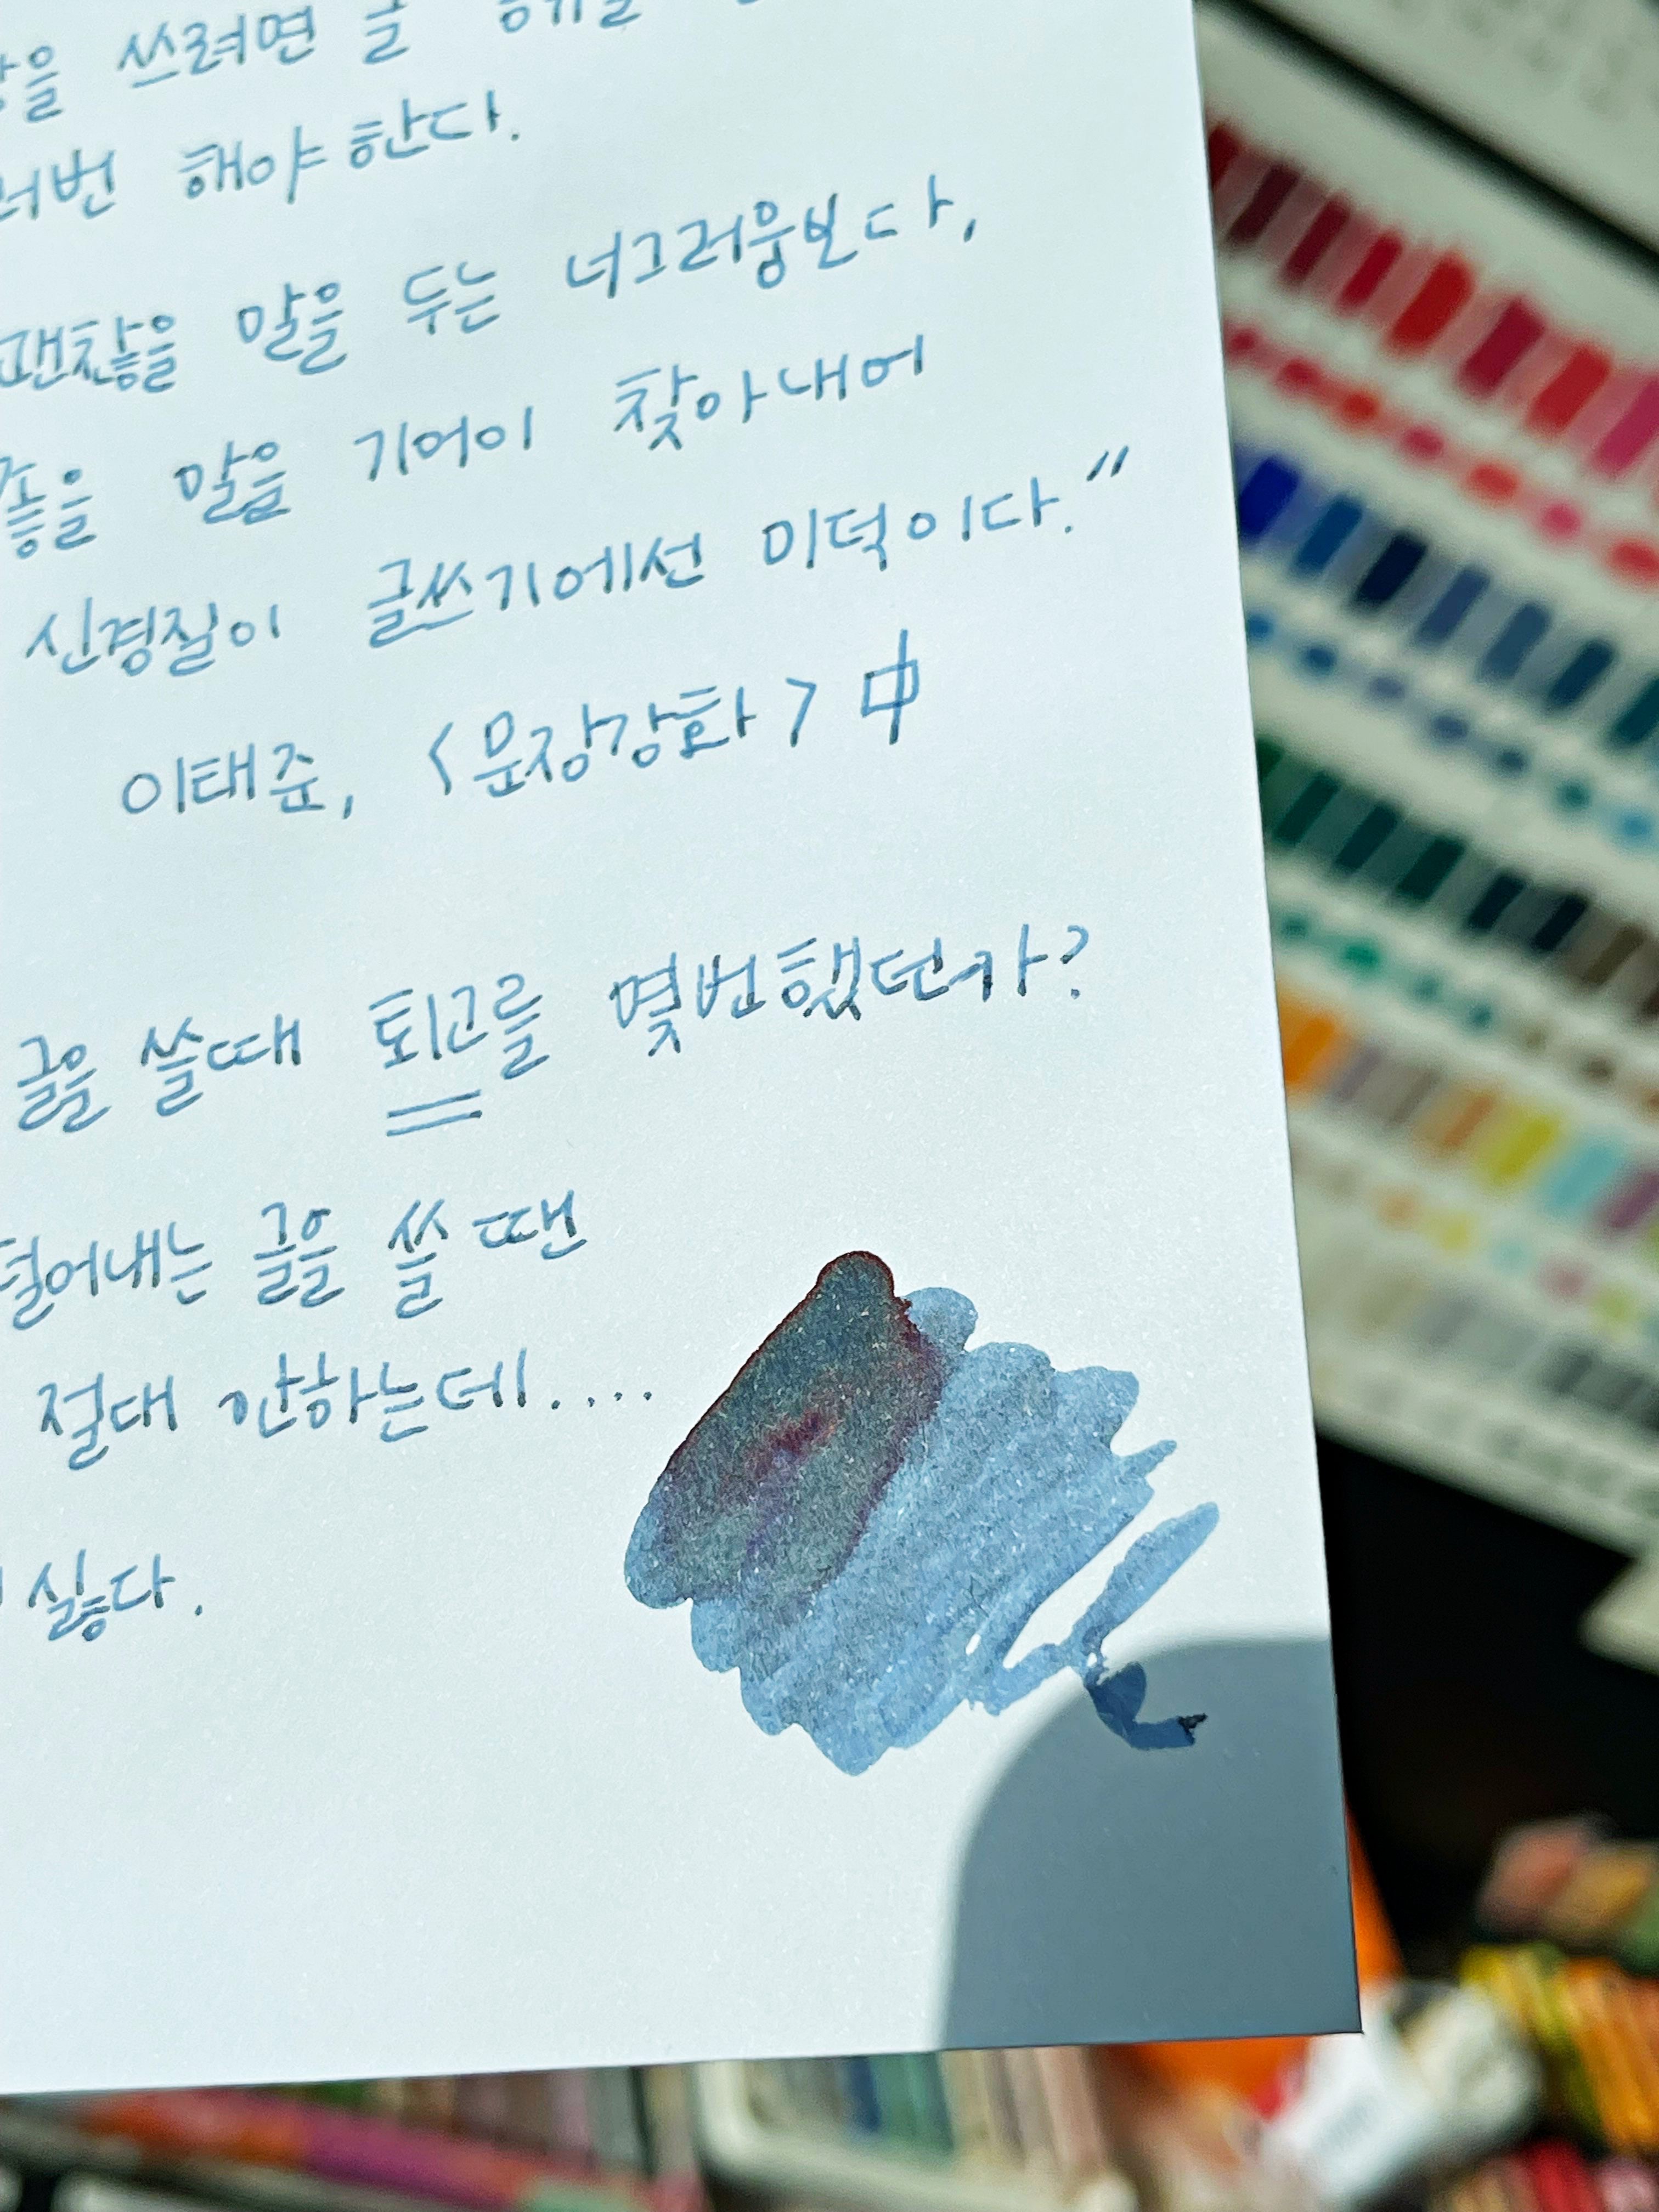 쓰려면 글
해야 한다.
괜찮을 말을 두는 너그러움보다,
좋을 말을 기어이 찾아내어
신경질이 글쓰기에선 미덕이다."
이태준, <문장강화> 中
글을 쓸때 퇴고를 몇번했던가?
털어내는 글을 쓸 땐
절대 안하는데....
싫다.